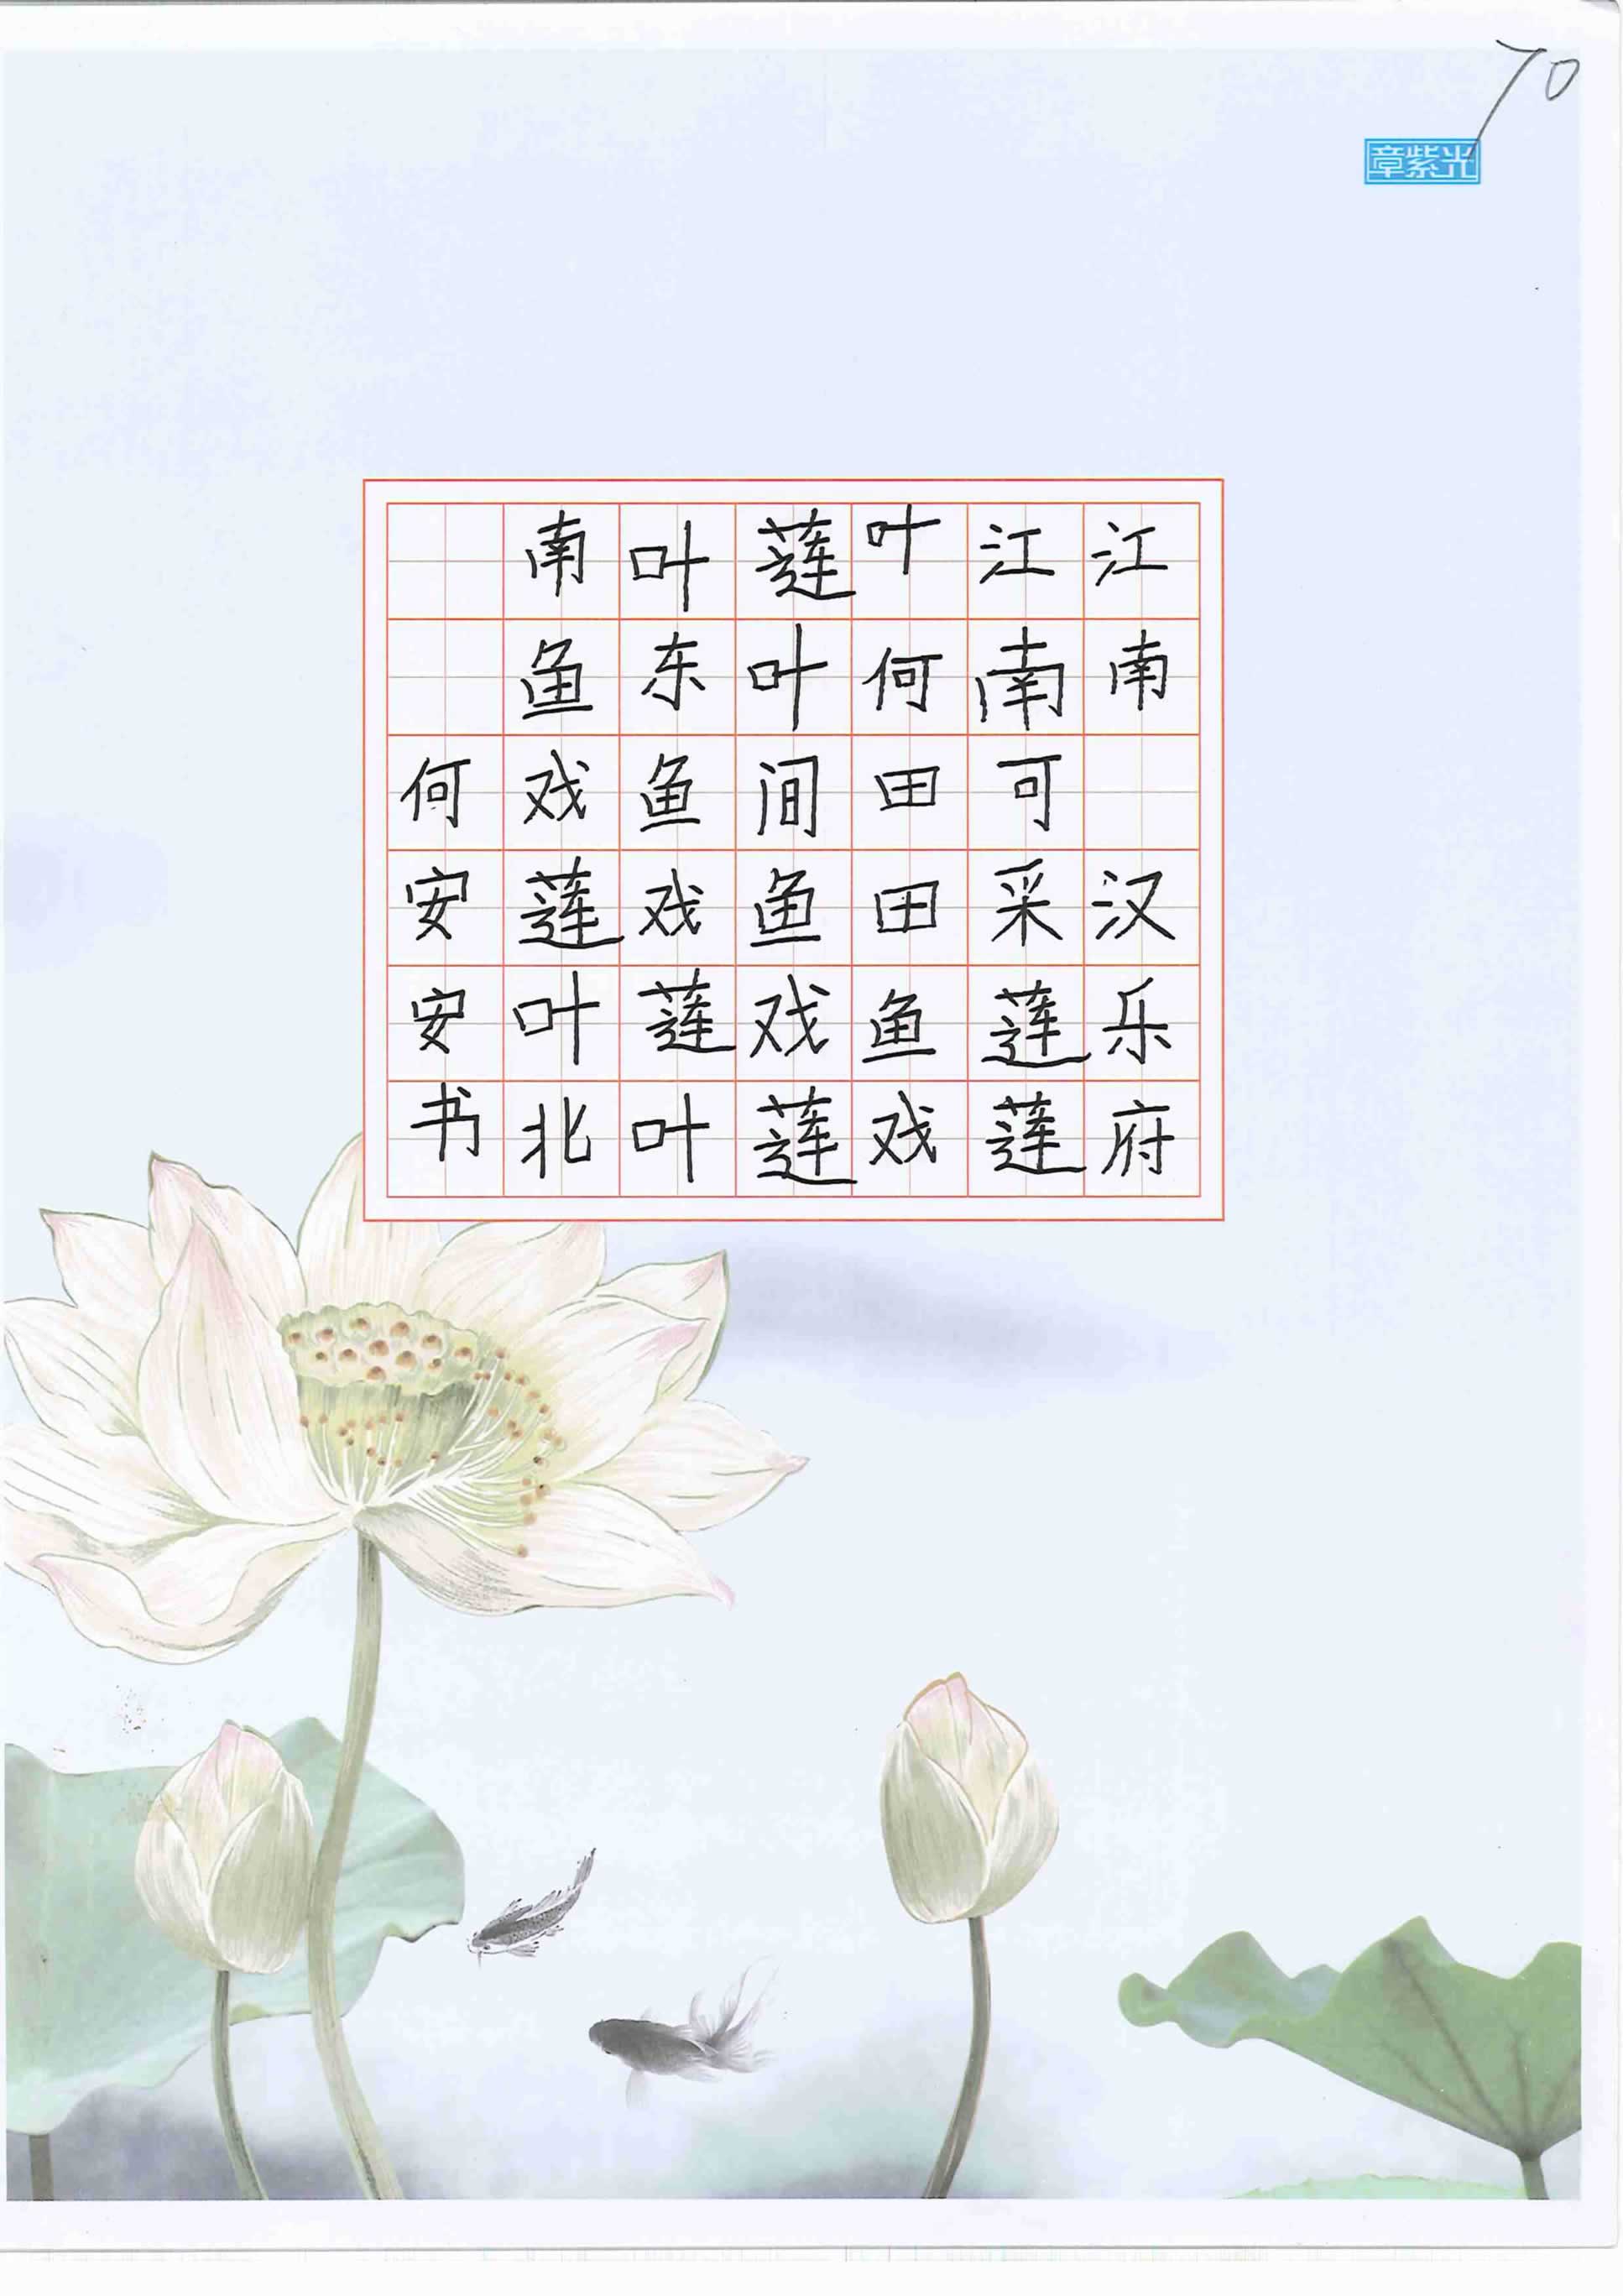 70
章紫光
江南 汉乐府
江南可采莲莲
叶何田田鱼戏
莲叶间鱼戏莲
叶东鱼戏莲叶
南鱼戏莲叶北
何安安书